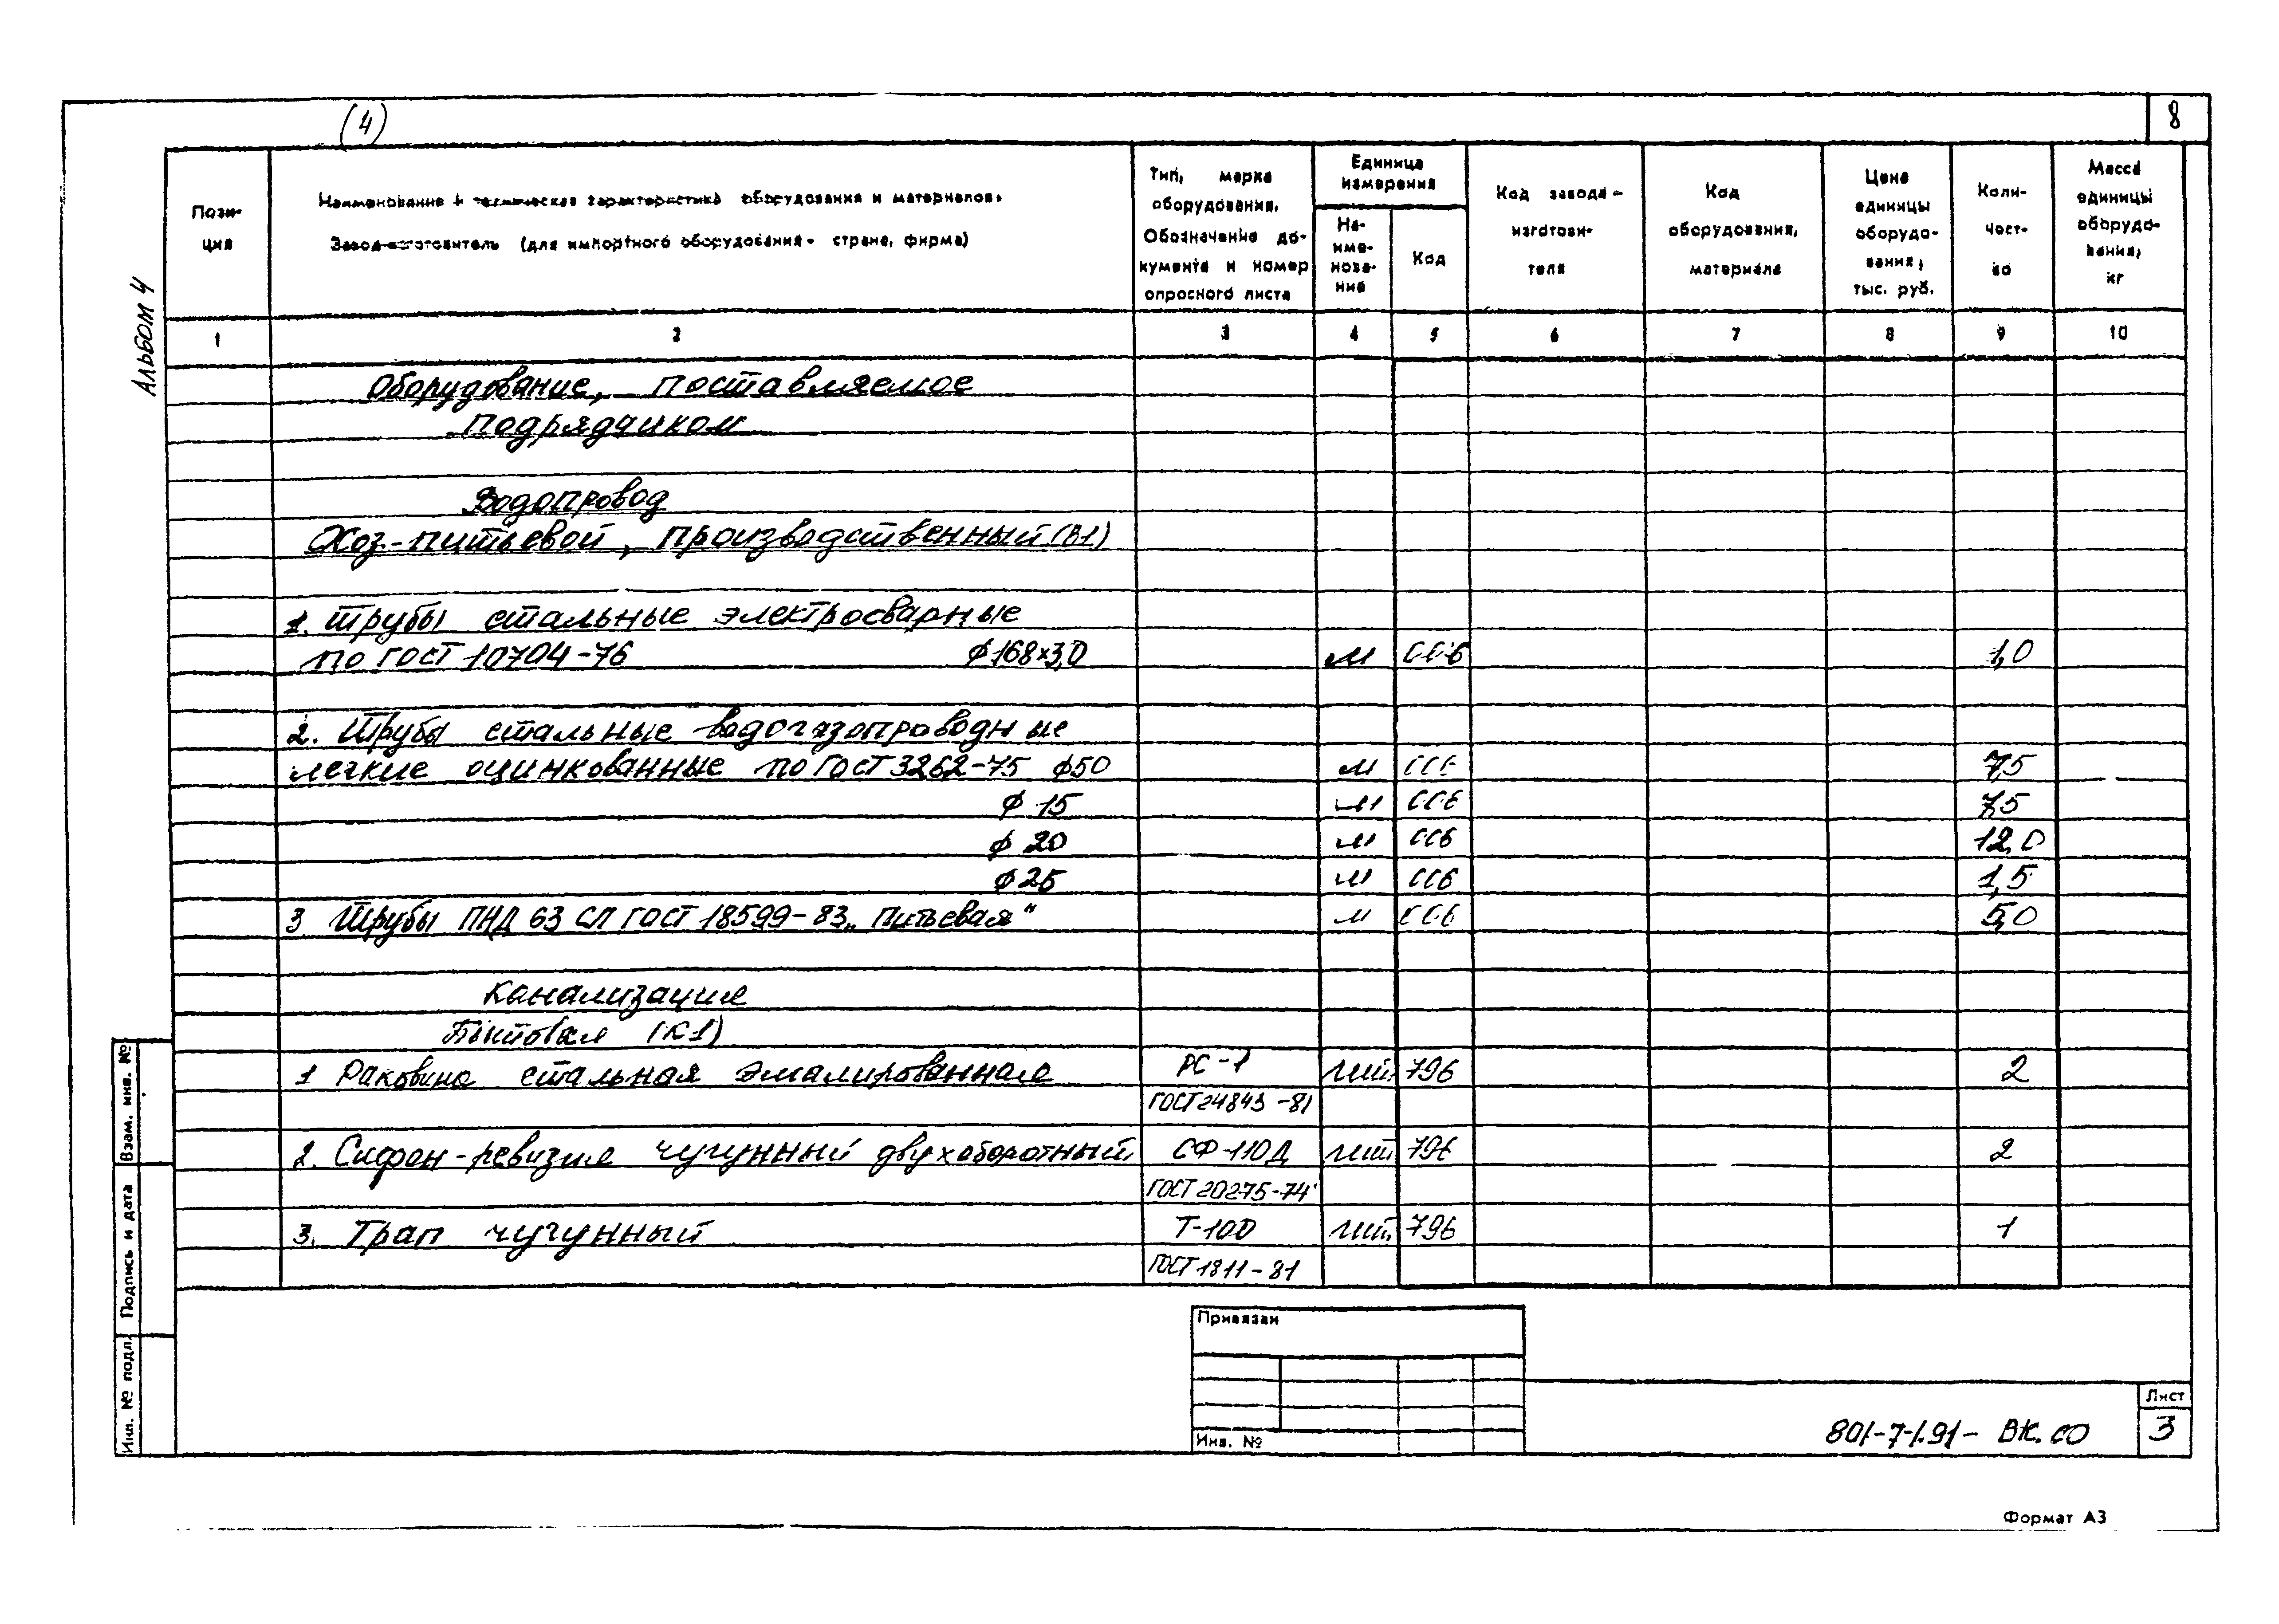 (4)
8
Альбом 4
Пози-
ция
Наименование и техническая характеристика оборудования и материалов.
Завод-изготовитель (для импортного оборудования - страна, фирма)
Тип, марка
оборудования.
Обозначение до-
кумента и номер
опросного листа
Единица
измерения
На-
име-
нова-
ние
Код
Код завода -
изготови-
теля
Код
оборудования,
материала
Цена
единицы
оборудо-
вания,
тыс. руб.
Коли-
чест-
во
Масса
единицы
оборудо-
вания,
кг
1 2 3 4 5 6 7 8 9 10
Оборудование, поставляемое
подрядчиком
Водопровод
Хоз-питьевой, производственный (В1)
1. Трубы стальные электросварные
по ГОСТ 10704-76 ф168×3,0 м 006 1,0
2. Трубы стальные водогазопроводные
легкие оцинкованные по ГОСТ 3262-75 ф50 м 006 7,5
ф 15 м 006 7,5
ф 20 м 006 12,0
ф 25 м 006 1,5
3 Трубы ПНД 63 СЛ ГОСТ 18599-83 „Питьевая" м 006 5,0
Канализация
Бытовая (К1)
1 Раковина стальная эмалированная РС-1 шт. 796 2
ГОСТ 24843-81
2. Сифон-ревизия чугунный двухоборотный СФ-110Д шт 796 2
ГОСТ 20275-74
3. Трап чугунный Т-100 шт. 796 1
ГОСТ 1811-81
Взам. инв. №
Подпись и дата
Инв. № подл.
Привязан
Инв. №
801-7-1.91- ВК.СО
Лист
3
Формат А3